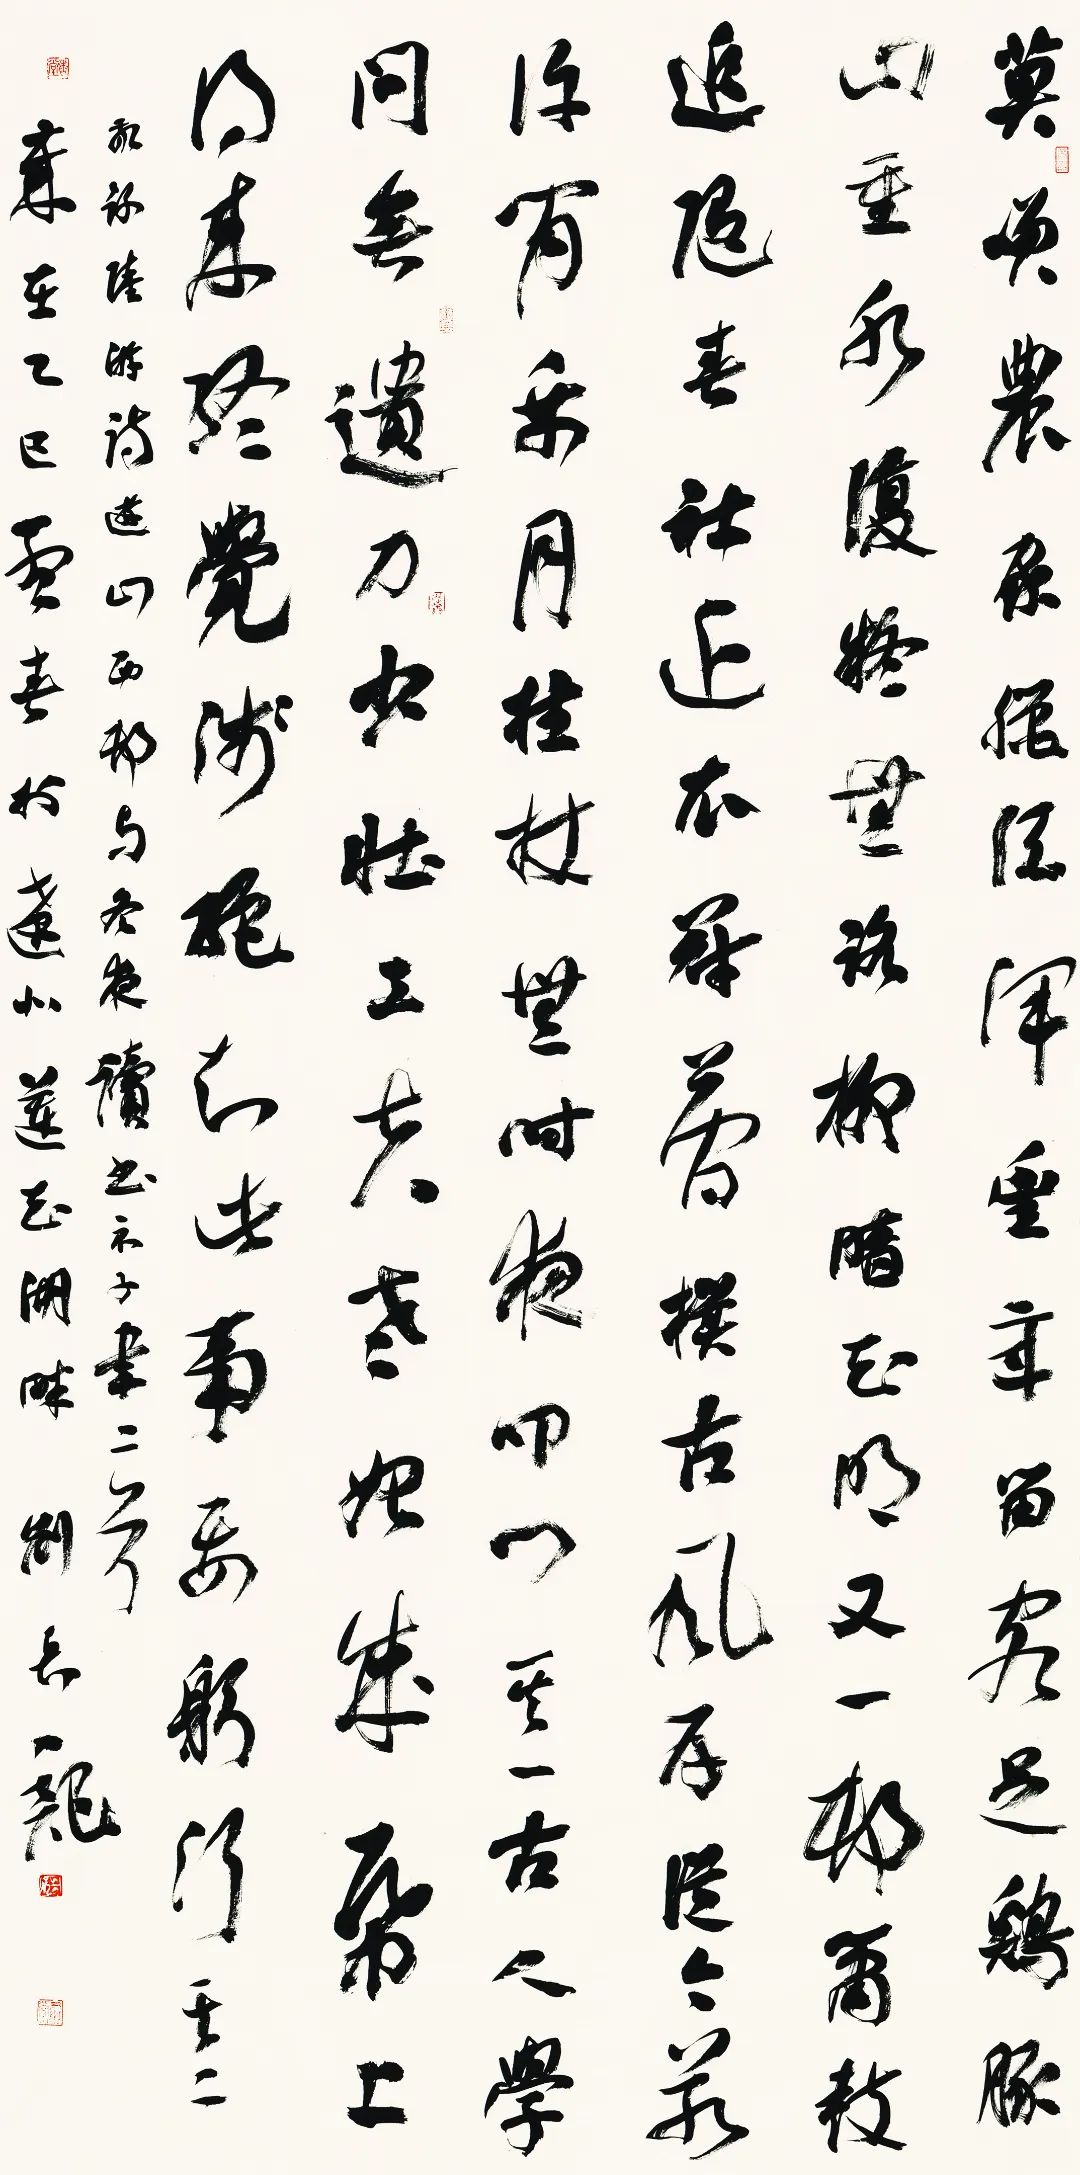 莫笑農家臘酒渾豐年留客足鷄豚
山重水複疑無路柳暗花明又一邨簫鼓
追隨春社近衣冠簡樸古風存從今若
許閒乘月拄杖無時夜叩門其一古人學
問無遺力少壯工夫老始成帋上
得來終覺淺絕知此事要躬行其二
陸游詩遊山西邨與冬夜讀書示子聿二首
歲在乙巳春於遼北蓮花湖畔劉長龍